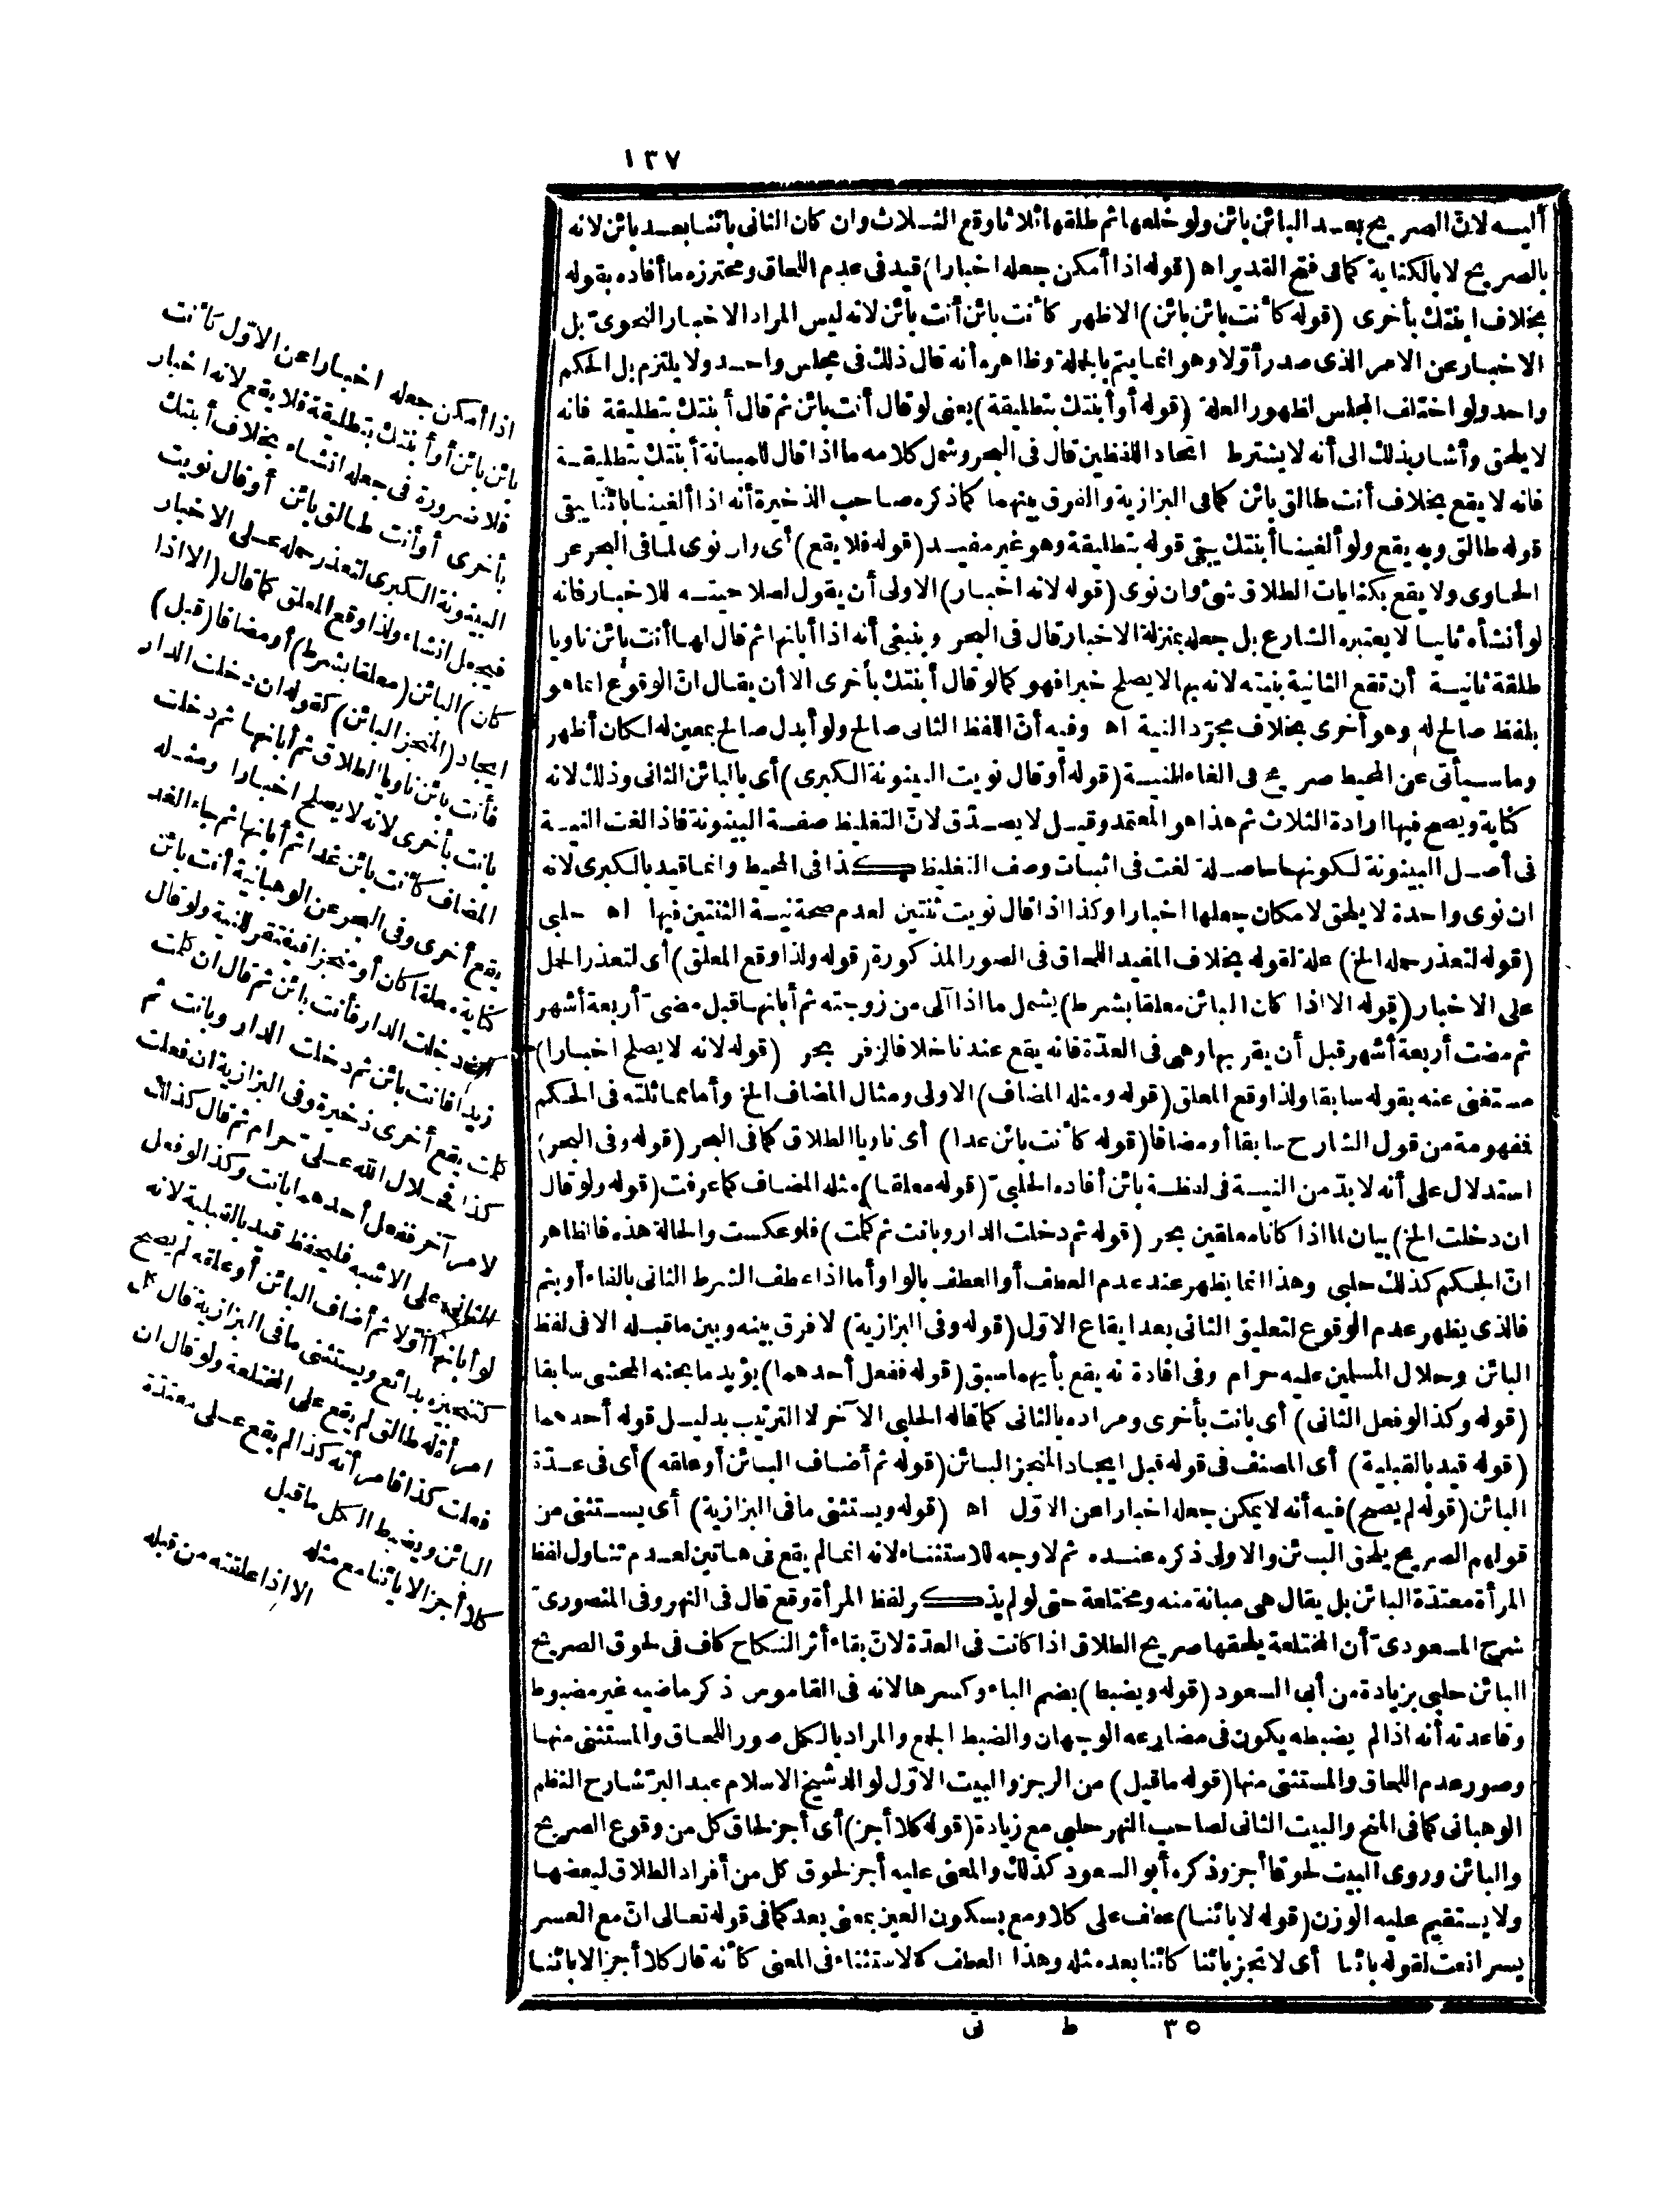 ١٣٧
أليسه لان الصريح بعد البائن بائن ولو خلعها ثم طلقها ثلاثا وقع الثلاث وان كان الثانى بائنا بعد بائن لانه
بالصريح لا بالكناية كما فى فتح القدير اه (قوله اذا أمكن جعله اخبارا) قيد فى عدم اللحاق ومحترزه ما أفاده بقوله
بخلاف ابنتك بأخرى (قوله كأنت بائن بائن) الاظهر كأنت بائن أنت بائن لانه ليس المراد الاخبار النحوى بل
الاخبار عن الامر الذى صدر أولا وهو انما يتم بالجملة وظاهره أنه قال ذلك فى مجلس واحد ولا يلتزم بل الحكم
واحد ولو اختلف المجلس لظهور العلة (قوله أو أبنتك بتطليقة) يعنى لو قال أنت بائن ثم قال أبنتك بتطليقة فانه
لا يلحق وأشار بذلك الى أنه لا يشترط اتحاد اللفظين قال فى البحر وشمل كلامه ما اذا قال للمبانة أبنتك بتطليقة
فانه لا يقع بخلاف أنت طالق بائن كما فى البزازية والفرق بينهما كما ذكره صاحب الذخيرة أنه اذا ألغينا بائنا يبقى
قوله طالق وبه يقع ولو ألغينا أبنتك يبقى قوله بتطليقة وهو غير مفيد (قوله فلا يقع) أى وان نوى لما فى البحر عن
الحاوى ولا يقع بكنايات الطلاق شئ وان نوى (قوله لانه اخبار) الاولى أن يقول لصلاحيته للاخبار فانه
لو أنشأه ثانيا لا يعتبره الشارع بل جعله بمنزلة الاخبار قال فى البحر وينبغى أنه اذا أبانها ثم قال لها أنت بائن ناويا
طلقة ثانية أن تقع الثانية بنيته لانه بها لا يصلح خبرا فهو كما لو قال أبنتك بأخرى الا أن يقال ان الوقوع انما هو
بلفظ صالح له وهو أخرى بخلاف مجرد النية اه وفيه أن اللفظ الثانى صالح ولو أبدل صالح بمعين له لكان أظهر
وما سيأتى عن المحيط صريح فى الغاء النية (قوله أو قال نويت البينونة الكبرى) أى بالبائن الثانى وذلك لانه
كناية ويصح فيها ارادة الثلاث ثم هذا هو المعتمد وقيل لا يصدق لان التغليظ صفة البينونة فاذا لغت النية
فى أصل البينونة لكونها حاصلة لغت فى اثبات وصف التغليظ كذا فى المحيط وانما قيد بالكبرى لانه
ان نوى واحدة لا يلحق لامكان جعلها اخبارا وكذا اذا قال نويت ثنتين لعدم صحة نية الثنتين فيها اه حلبى
(قوله لتعذر حمله الخ) علة لقوله بخلاف المفيد اللحاق فى الصور المذكورة (قوله ولذا وقع المعلق) أى لتعذر الحمل
على الاخبار (قوله الا اذا كان البائن معلقا بشرط) يشمل ما اذا آلى من زوجته ثم أبانها قبل مضى أربعة أشهر
ثم مضت أربعة أشهر قبل أن يقربها وهى فى العدة فانه يقع عندنا خلافا لزفر بحر (قوله لانه لا يصلح اخبارا)
مستغنى عنه بقوله سابقا ولذا وقع المعلق (قوله ومثله المضاف) الاولى ومثال المضاف الخ وأما مماثلته فى الحكم
فمفهومة من قول الشارح سابقا أو مضافا (قوله كأنت بائن غدا) أى ناويا الطلاق كما فى البحر (قوله وفى البحر)
استدلال على أنه لا بد من النية فى لفظة بائن أفاده الحلبى (قوله معلقا) مثله المضاف كما عرفت (قوله ولو قال
ان دخلت الخ) بيان لما اذا كانا معلقين بحر (قوله ثم دخلت الدار وبانت ثم كلمت) فلو عكست والحالة هذه فالظاهر
ان الحكم كذلك حلبى وهذا انما يظهر عند عدم العطف أو العطف بالواو وأما اذا عطف الشرط الثانى بالفاء أو بثم
فالذى يظهر عدم الوقوع لتعليق الثانى بعد ايقاع الاول (قوله وفى البزازية) لا فرق بينه وبين ما قبله الا فى لفظ
البائن وحلال المسلمين عليه حرام وفى افادة أنه يقع بأيهما سبق (قوله ففعل أحدهما) يؤيد ما بحثه المحشى سابقا
(قوله وكذا لو فعل الثانى) أى بانت بأخرى ومراده بالثانى كما قاله الحلبى الآخر لا الترتيب بدليل قوله أحدهما
(قوله قيد بالقبلية) أى المصنف فى قوله قبل ايجاد المنجز البائن (قوله ثم أضاف البائن أو علقه) أى فى عدة
البائن (قوله لم يصح) فيه أنه لا يمكن جعله اخبارا عن الاول اه (قوله ويستثنى ما فى البزازية) أى يستثنى من
قولهم الصريح يلحق البائن والاولى ذكره عنده ثم لا وجه للاستثناء لانه انما لم يقع فى هاتين لعدم تناول لفظ
المرأة معتدة البائن بل يقال هى مبانة منه ومختلعة حتى لو لم يذكر لفظ المرأة وقع قال فى النهر وفى المنصورى
شرح المسعودى أن المختلعة يلحقها صريح الطلاق اذا كانت فى العدة لان بقاء أثر النكاح كاف فى لحوق الصريح
البائن حلبى بزيادة من أبى السعود (قوله ويضبط) بضم الباء وكسرها لانه فى القاموس ذكر ماضيه غير مضبوط
وقاعدته أنه اذا لم يضبطه يكون فى مضارعه الوجهان والضبط الجمع والمراد بالكل صور اللحاق والمستثنى منها
وصور عدم اللحاق والمستثنى منها (قوله ما قيل) من الرجز والبيت الاول لوالد شيخ الاسلام عبد البر شارح النظم
الوهبانى كما فى المنح والبيت الثانى لصاحب النهر حلبى مع زيادة (قوله كلا أجز) أى أجز لحاق كل من وقوع الصريح
والبائن وروى البيت لحوقا أجز وذكره أبو السعود كذلك والمعنى عليه أجز لحوق كل من أفراد الطلاق لبعضها
ولا يستقيم عليه الوزن (قوله لا بائنا) عطف على كلا ومع بسكون العين بمعنى بعد كما فى قوله تعالى ان مع العسر
يسرا نعت لقوله بائنا أى لا تجز بائنا كائنا بعد مثله وهذا العطف كالاستثناء فى المعنى كأنه قال كلا أجز الا بائنا
٣٥ ط نى
اذا أمكن جعله اخبارا عن الاول كأنت
بائن بائن أو أبنتك بتطليقة فلا يقع لانه اخبار
فلا ضرورة فى جعله انشاء بخلاف أبنتك
بأخرى أو أنت طالق بائن أو قال نويت
البينونة الكبرى لتعذر حمله على الاخبار
فيجعل انشاء ولذا وقع المعلق كما قال (الا اذا
كان) البائن (معلقا بشرط) أو مضافا (قبل)
ايجاد (المنجز البائن) كقوله ان دخلت الدار
فأنت بائن ناويا الطلاق ثم أبانها ثم دخلت
بانت بأخرى لانه لا يصلح اخبارا ومثله
المضاف كأنت بائن غدا ثم أبانها ثم جاء الغد
يقع أخرى وفى البحر عن الوهبانية أنت بائن
كناية معلقا كان أو منجزا فيفتقر للنية ولو قال
ان دخلت الدار فأنت بائن ثم قال ان كلمت
زيدا فانت بائن ثم دخلت الدار وبانت ثم
كلمت يقع أخرى ذخيرة وفى البزازية ان فعلت
كذا فحلال الله على حرام ثم قال كذلك
لامر آخر ففعل أحدهما بانت وكذا لو فعل
الثانى على الاشبه فليحفظ قيد بالقبلية لانه
لو أبانها أولا ثم أضاف البائن أو علقه لم يصح
كتنجيزه بدائع ويستثنى ما فى البزازية قال كل
امرأة له طالق لم يقع على المختلعة ولو قال ان
فعلت كذا فامرأته كذا لم يقع على معتدة
البائن ويضبط الكل ما قيل
كلا أجز الا بائنا مع مثله
الا اذا علقته من قبله